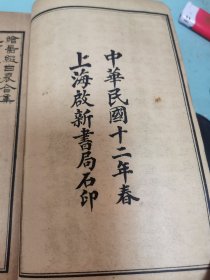 中華民國十二年春
上海啟新書局石印